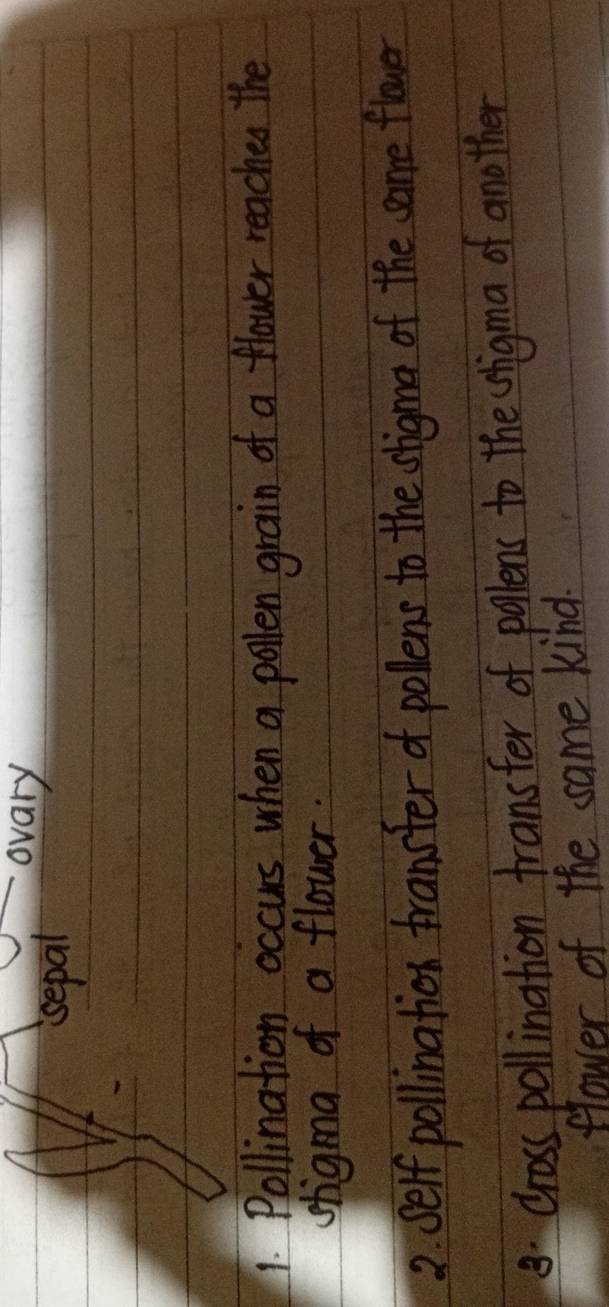 ovary
sepal
1. Pollination occurs when a pollen grain of a flower reaches the
stigma of a flower.
2. Self pollination transfer of pollens to the stigma of the same flower
3. Cross pollination transfer of pollens to the stigma of another
flower of the same kind.